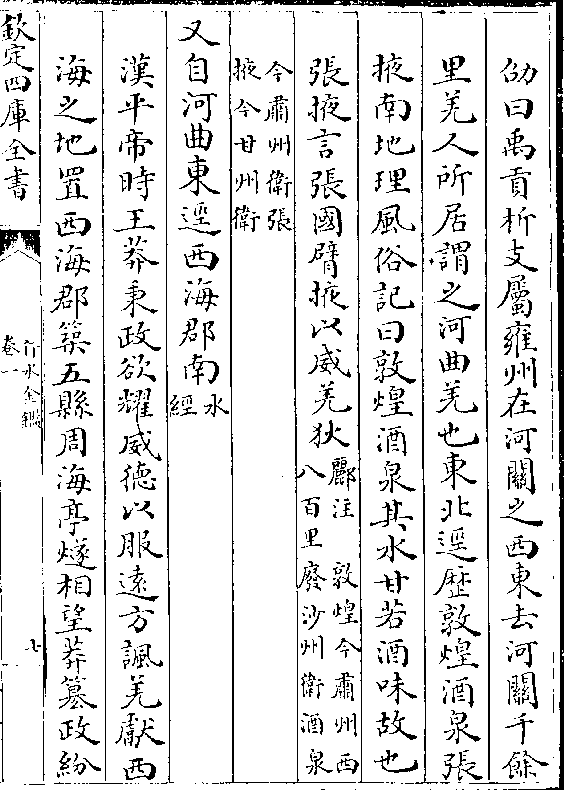 劭曰禹貢析支屬雍州在河關之西東去河關千餘
里羌人所居謂之河曲羌也東北逕歷敦煌酒泉張
掖南地理風俗記曰敦煌酒泉其水甘若酒味故也
張掖言張國臂掖以威羌狄酈注 敦煌今肅州西
八百里廢沙州衛酒泉
今肅州衛張
掖今甘州衛
又自河曲東逕西海郡南水
經
漢平帝時王莽秉政欲耀威德以服遠方諷羌獻西
海之地置西海郡築五縣周海亭燧相望莽篡政紛
欽定四庫全書
行水金鑑
卷一
七